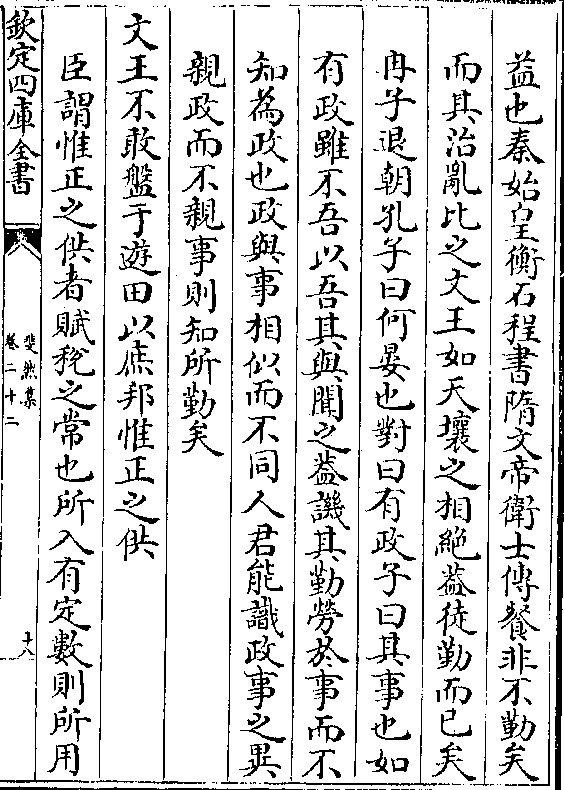 益也秦始皇衡石程書隋文帝衛士傳餐非不勤矣
而其治亂比之文王如天壤之相絶葢徒勤而已矣
冉子退朝孔子曰何晏也對曰有政子曰其事也如
有政雖不吾以吾其與聞之葢譏其勤勞於事而不
知為政也政與事相似而不同人君能識政事之異
親政而不親事則知所勤矣
文王不敢盤于遊田以庶邦惟正之供
臣謂惟正之供者賦稅之常也所入有定數則所用
欽定四庫全書
斐然集
卷二十二
十八